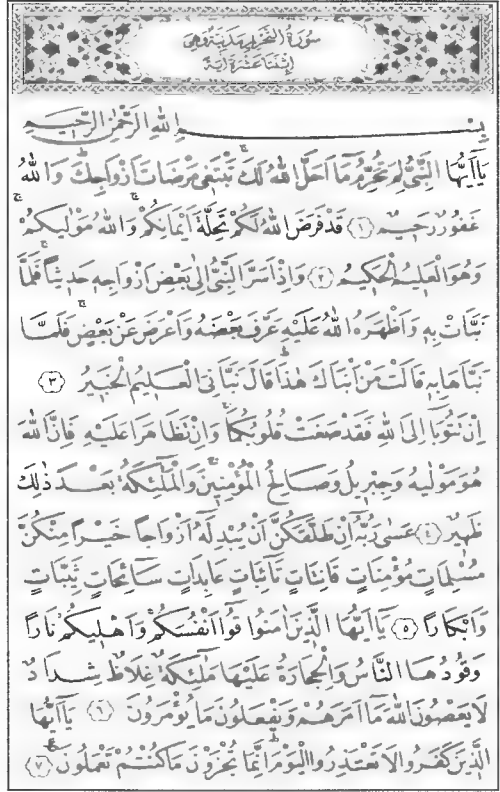 سُورَةُ التَّحْرِيمِ مَدَنِيَّةٌ وَهِيَ
اِثْنَتَا عَشْرَةَ اٰيَةً
بِسْمِ اللّٰهِ الرَّحْمٰنِ الرَّحِيمِ
يَٓا اَيُّهَا النَّبِيُّ لِمَ تُحَرِّمُ مَٓا اَحَلَّ اللّٰهُ لَكَۚ تَبْتَغِي مَرْضَاتَ اَزْوَاجِكَۜ وَاللّٰهُ
غَفُورٌ رَحِيمٌ ﴿١﴾ قَدْ فَرَضَ اللّٰهُ لَكُمْ تَحِلَّةَ اَيْمَانِكُمْۚ وَاللّٰهُ مَوْلٰيكُمْۚ
وَهُوَ الْعَلِيمُ الْحَكِيمُ ﴿٢﴾ وَاِذْ اَسَرَّ النَّبِيُّ اِلٰى بَعْضِ اَزْوَاجِهِ حَدِيثًاۚ فَلَمَّا
نَبَّاَتْ بِهِ وَاَظْهَرَهُ اللّٰهُ عَلَيْهِ عَرَّفَ بَعْضَهُ وَاَعْرَضَ عَنْ بَعْضٍۚ فَلَمَّا
نَبَّاَهَا بِهِ قَالَتْ مَنْ اَنْبَاَكَ هٰذَاۜ قَالَ نَبَّاَنِيَ الْعَلِيمُ الْخَبِيرُ ﴿٣﴾
اِنْ تَتُوبَٓا اِلَى اللّٰهِ فَقَدْ صَغَتْ قُلُوبُكُمَاۚ وَاِنْ تَظَاهَرَا عَلَيْهِ فَاِنَّ اللّٰهَ
هُوَ مَوْلٰيهُ وَجِبْرِيلُ وَصَالِحُ الْمُؤْمِنِينَۚ وَالْمَلٰٓئِكَةُ بَعْدَ ذٰلِكَ
ظَهِيرٌ ﴿٤﴾ عَسٰى رَبُّهُٓ اِنْ طَلَّقَكُنَّ اَنْ يُبْدِلَهُٓ اَزْوَاجًا خَيْرًا مِنْكُنَّ
مُسْلِمَاتٍ مُؤْمِنَاتٍ قَانِتَاتٍ تَٓائِبَاتٍ عَابِدَاتٍ سَٓائِحَاتٍ ثَيِّبَاتٍ
وَاَبْكَارًا ﴿٥﴾ يَٓا اَيُّهَا الَّذِينَ اٰمَنُوا قُٓوا اَنْفُسَكُمْ وَاَهْلِيكُمْ نَارًا
وَقُودُهَا النَّاسُ وَالْحِجَارَةُ عَلَيْهَا مَلٰٓئِكَةٌ غِلَاظٌ شِدَادٌ
لَا يَعْصُونَ اللّٰهَ مَٓا اَمَرَهُمْ وَيَفْعَلُونَ مَا يُؤْمَرُونَ ﴿٦﴾ يَٓا اَيُّهَا
الَّذِينَ كَفَرُوا لَا تَعْتَذِرُوا الْيَوْمَۜ اِنَّمَا تُجْزَوْنَ مَا كُنْتُمْ تَعْمَلُونَ ﴿٧﴾